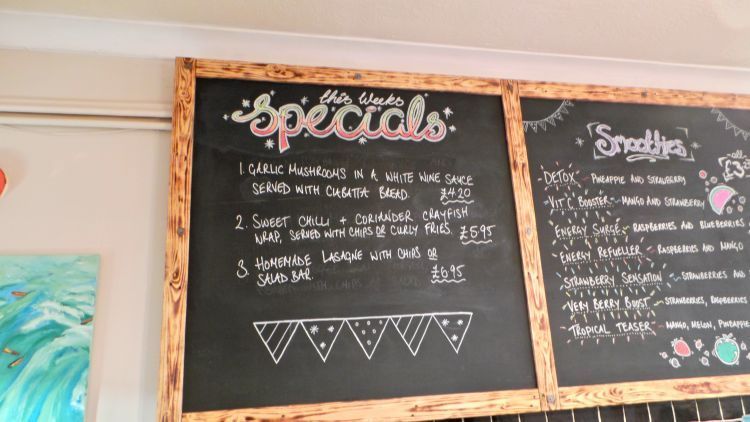 this weeks
specials
1. GARLIC MUSHROOMS IN A WHITE WINE SAUCE
SERVED WITH CIABATTA BREAD. £4.20
2. SWEET CHILLI + CORIANDER CRAYFISH
WRAP, SERVED WITH CHIPS OR CURLY FRIES. £5.95
3. HOMEMADE LASAGNE WITH CHIPS OR
SALAD BAR. £6.95
Smoothies
all
£3
DETOX - PINEAPPLE AND STRAWBERRY
VIT C BOOSTER - MANGO AND STRAWBERRY
ENERGY SURGE - RASPBERRIES AND BLUEBERRIES
ENERGY REFUELLER - RASPBERRIES AND MANGO
STRAWBERRY SENSATION - STRAWBERRIES AND
VERY BERRY BOOST - STRAWBERRIES, RASPBERRIES
TROPICAL TEASER - MANGO, MELON, PINEAPPLE